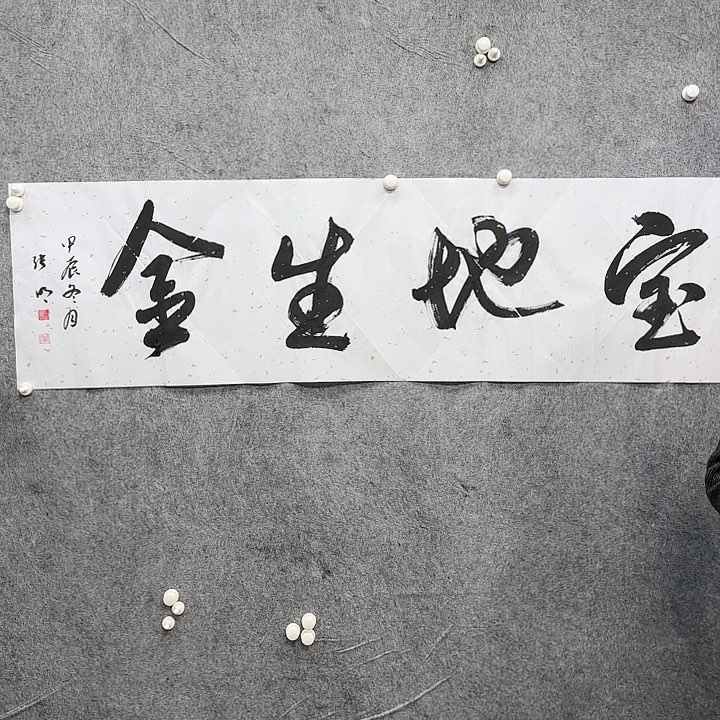 宝地生金
甲辰冬月